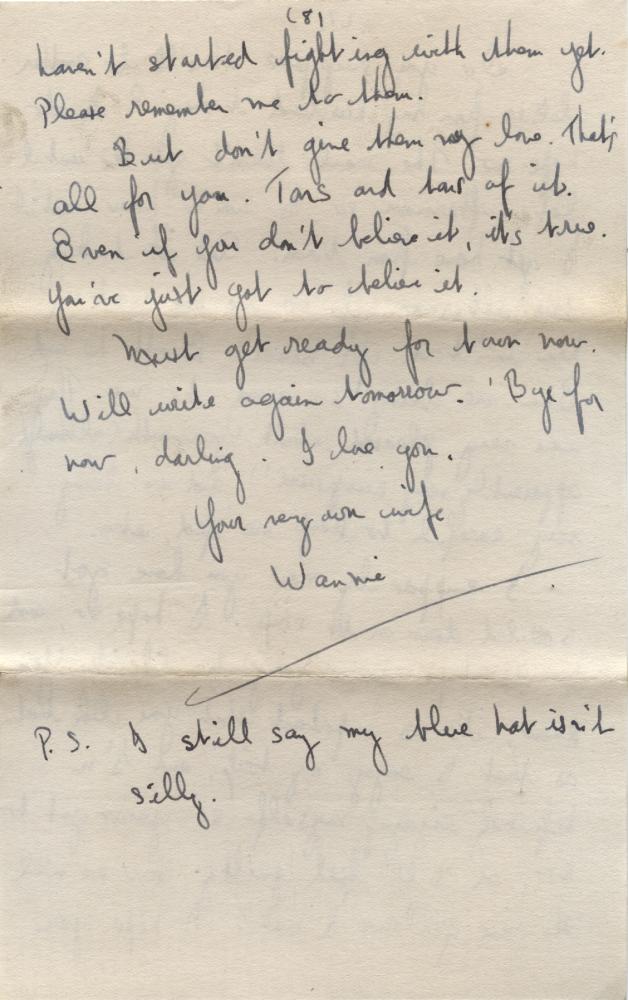 (8)
haven't started fighting with them yet.
Please remember me to them.
But don't give them my love. That's
all for you. Tons and tons of it.
Even if you don't believe it, it's true.
You've just got to believe it.
Must get ready for town now.
Will write again tomorrow. 'Bye for
now, darling. I love you.
Your very own wife
Wannie
P.S. I still say my blue hat isn't
silly.